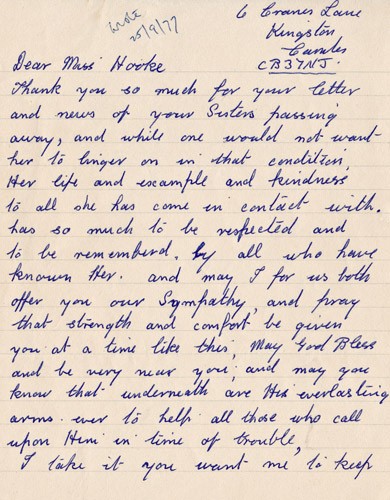 wrote
25/9/77
6 Cranes Lane
Kingston
Cambs
CB37NJ.
Dear Miss Hooke
Thank you so much for your letter
and news of your Sisters passing
away, and while one would not want
her to linger on in that condition
Her life and example and kindness
to all she has come in contact with.
has so much to be respected and
to be rememberd. by all who have
known Her. and may I for us both
offer you our Sympathy, and pray
that strength and comfort be given
you at a time like this, May God Bless
and be very near you, and may you
know that underneath are His everlasting
arms. ever to help all those who call
upon Him in time of trouble,
I take it you want me to keep